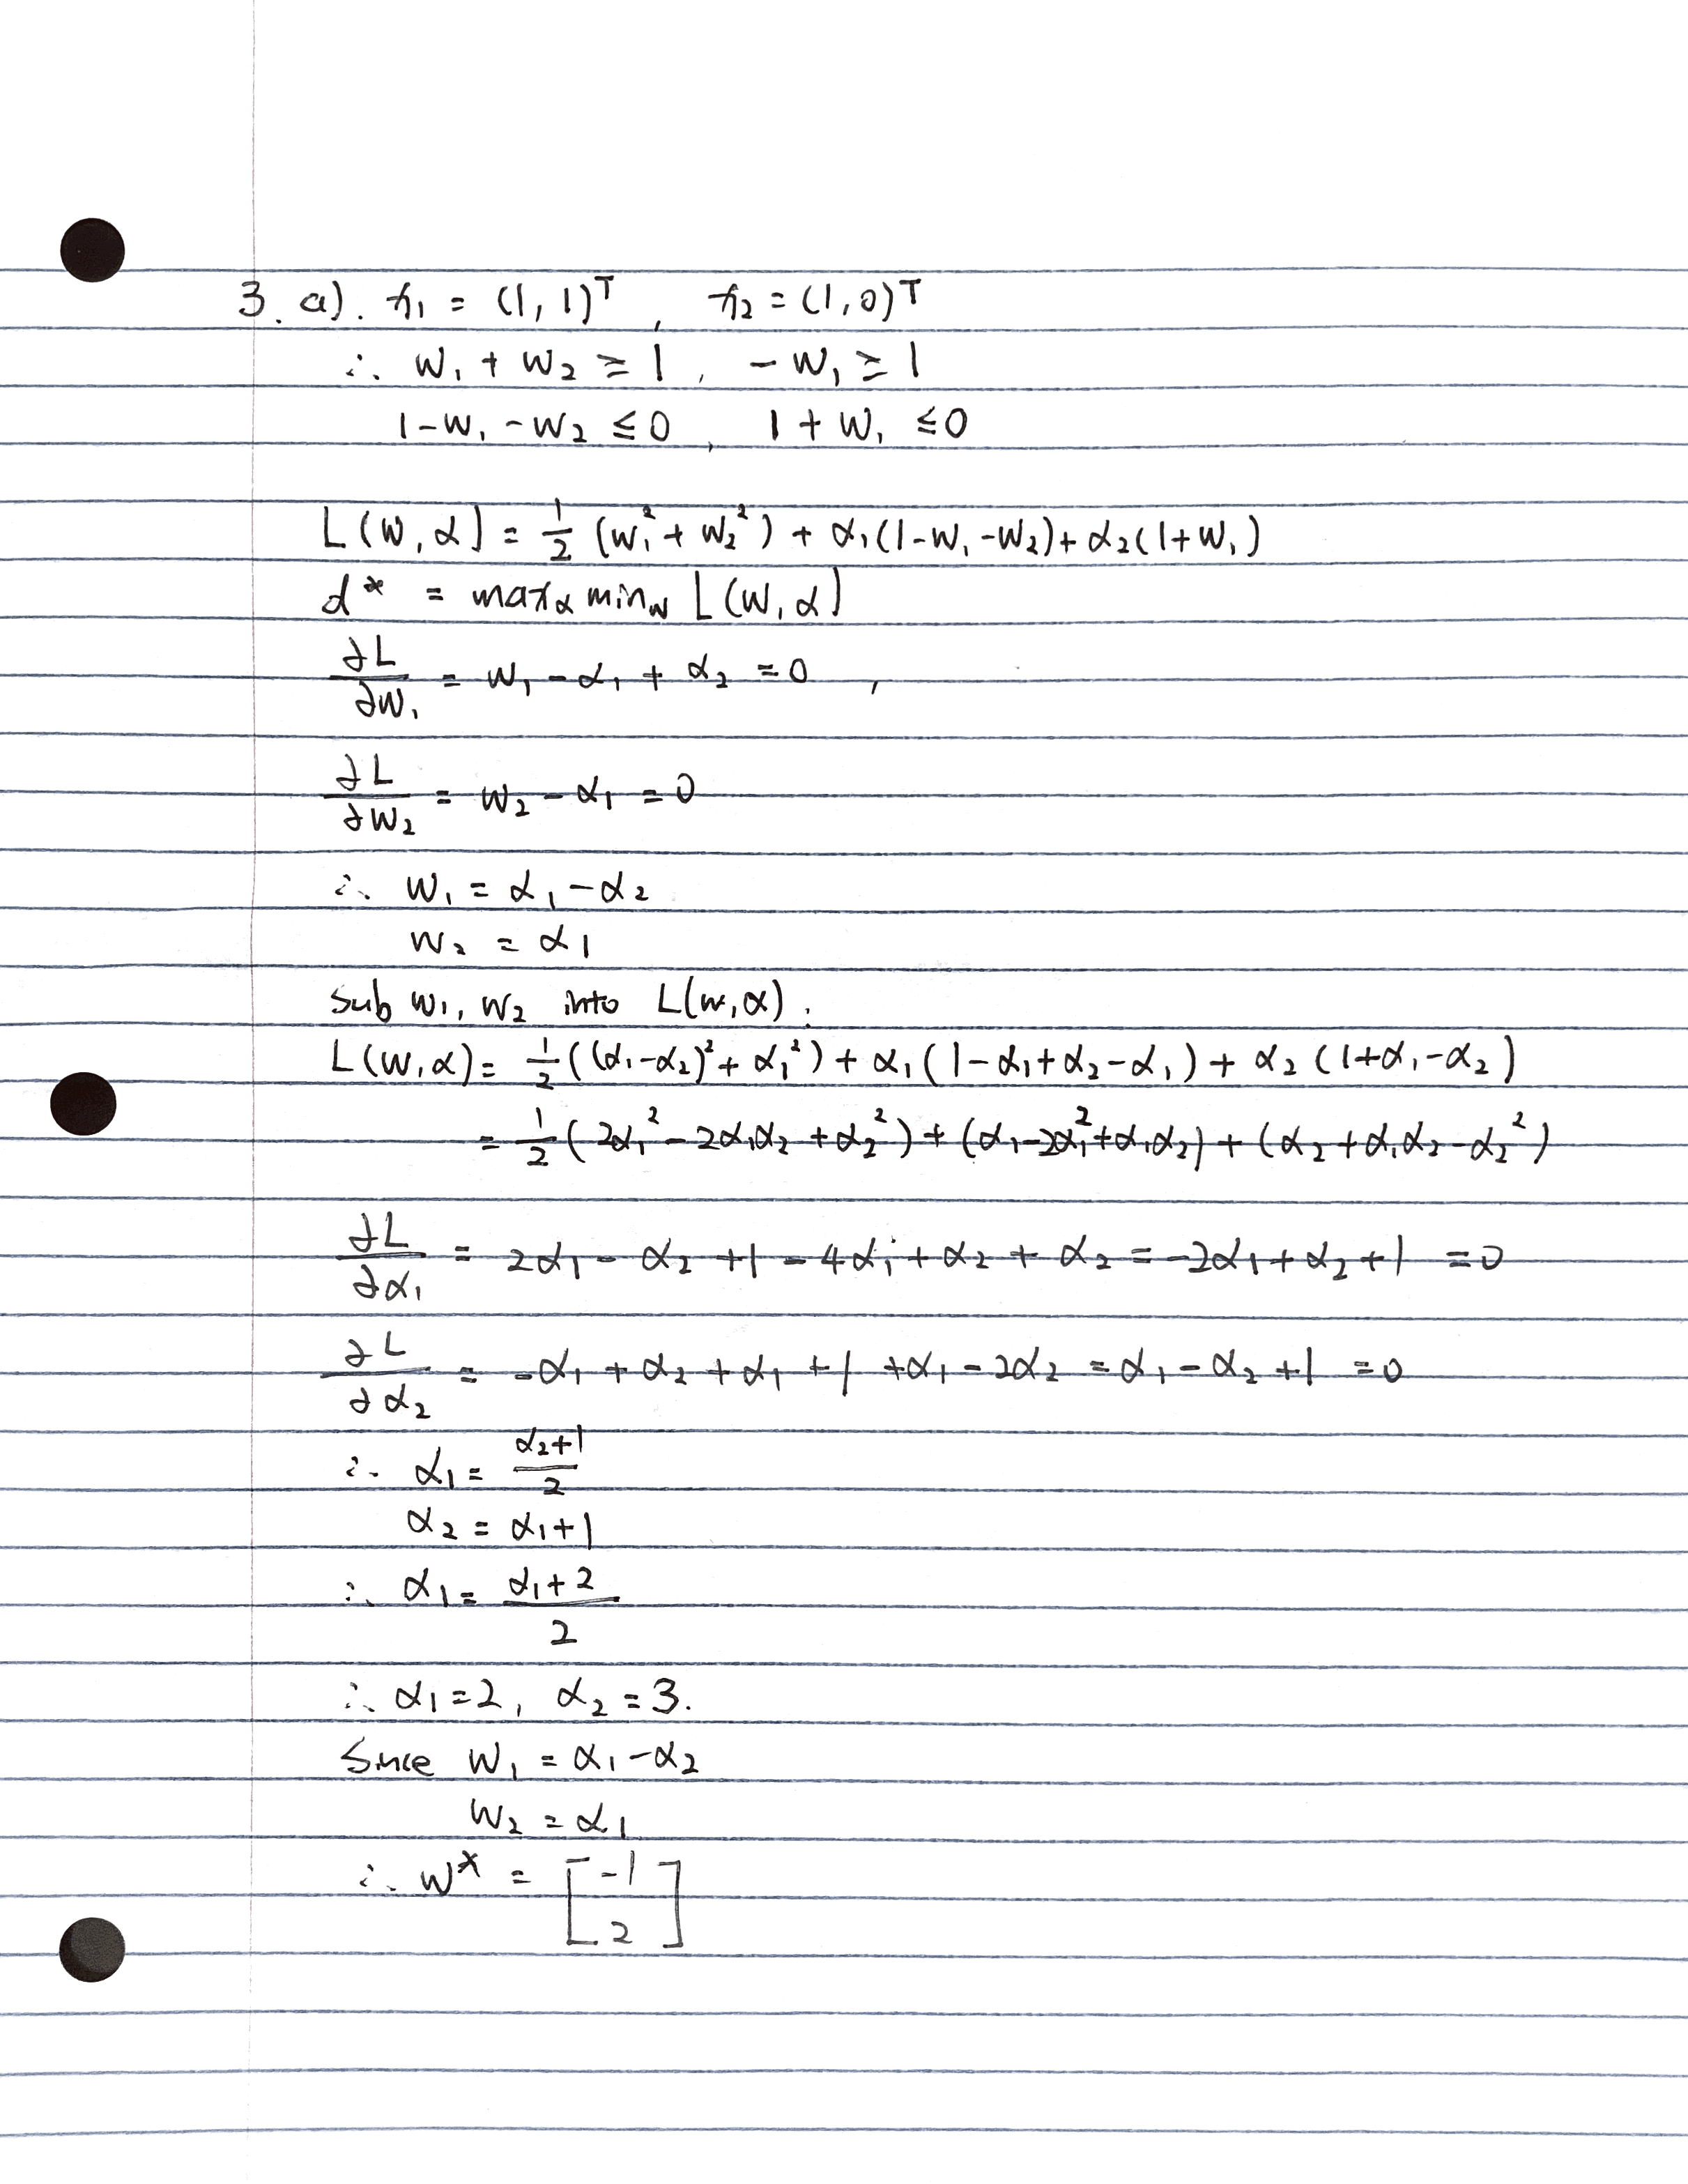 3. a). x₁ = (1, 1)ᵀ, x₂ = (1, 0)ᵀ
∴ w₁ + w₂ ≥ 1, -w₁ ≥ 1
1-w₁-w₂ ≤ 0, 1+w₁ ≤ 0
L(w, α) = 1/2 (w₁² + w₂²) + α₁(1-w₁-w₂) + α₂(1+w₁)
d* = max_α min_w L(w, α)
∂L/∂w₁ = w₁ - α₁ + α₂ = 0,
∂L/∂w₂ = w₂ - α₁ = 0
∴ w₁ = α₁ - α₂
w₂ = α₁
sub w₁, w₂ into L(w, α).
L(w, α) = 1/2 ((α₁-α₂)² + α₁²) + α₁(1-α₁+α₂-α₁) + α₂(1+α₁-α₂)
= 1/2 (2α₁² - 2α₁α₂ + α₂²) + (α₁-2α₁²+α₁α₂) + (α₂+α₁α₂-α₂²)
∂L/∂α₁ = 2α₁ - α₂ + 1 - 4α₁ + α₂ + α₂ = -2α₁ + α₂ + 1 = 0
∂L/∂α₂ = -α₁ + α₂ + α₁ + 1 + α₁ - 2α₂ = α₁ - α₂ + 1 = 0
∴ α₁ = (α₂+1)/2
α₂ = α₁+1
∴ α₁ = (α₁+2)/2
∴ α₁ = 2, α₂ = 3.
Since w₁ = α₁ - α₂
w₂ = α₁
∴ w* = [-1
2]